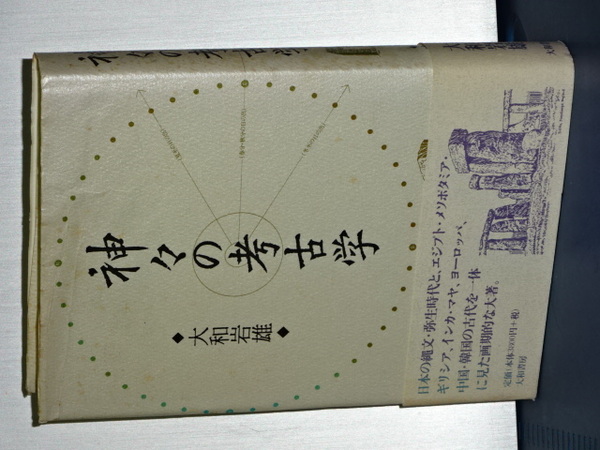 神々の考古学
◆大和岩雄◆
日本の縄文・弥生時代と、エジプト・メソポタミア・
ギリシア、インカ・マヤ、ヨーロッパ、
中国・韓国の古代を一体
に見た画期的な大著。
定価:本体3800円(+税)
大和書房